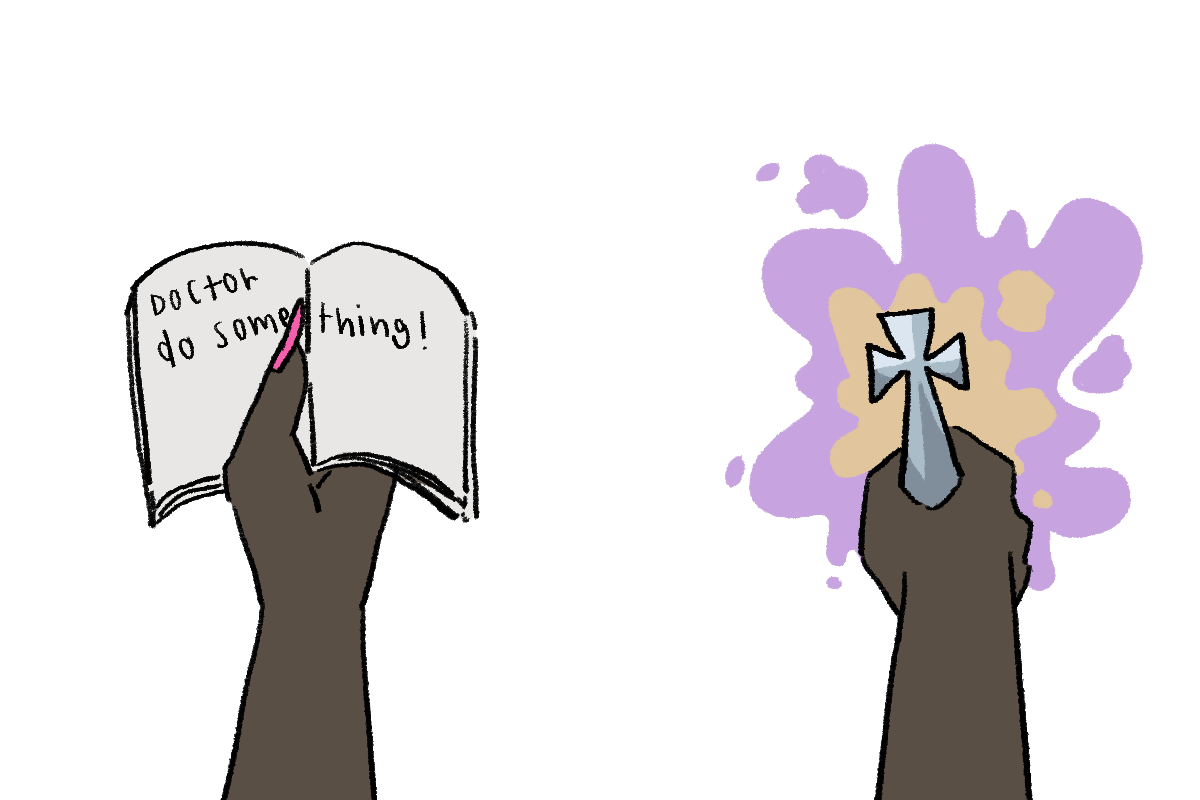 DOCTOR
do something!